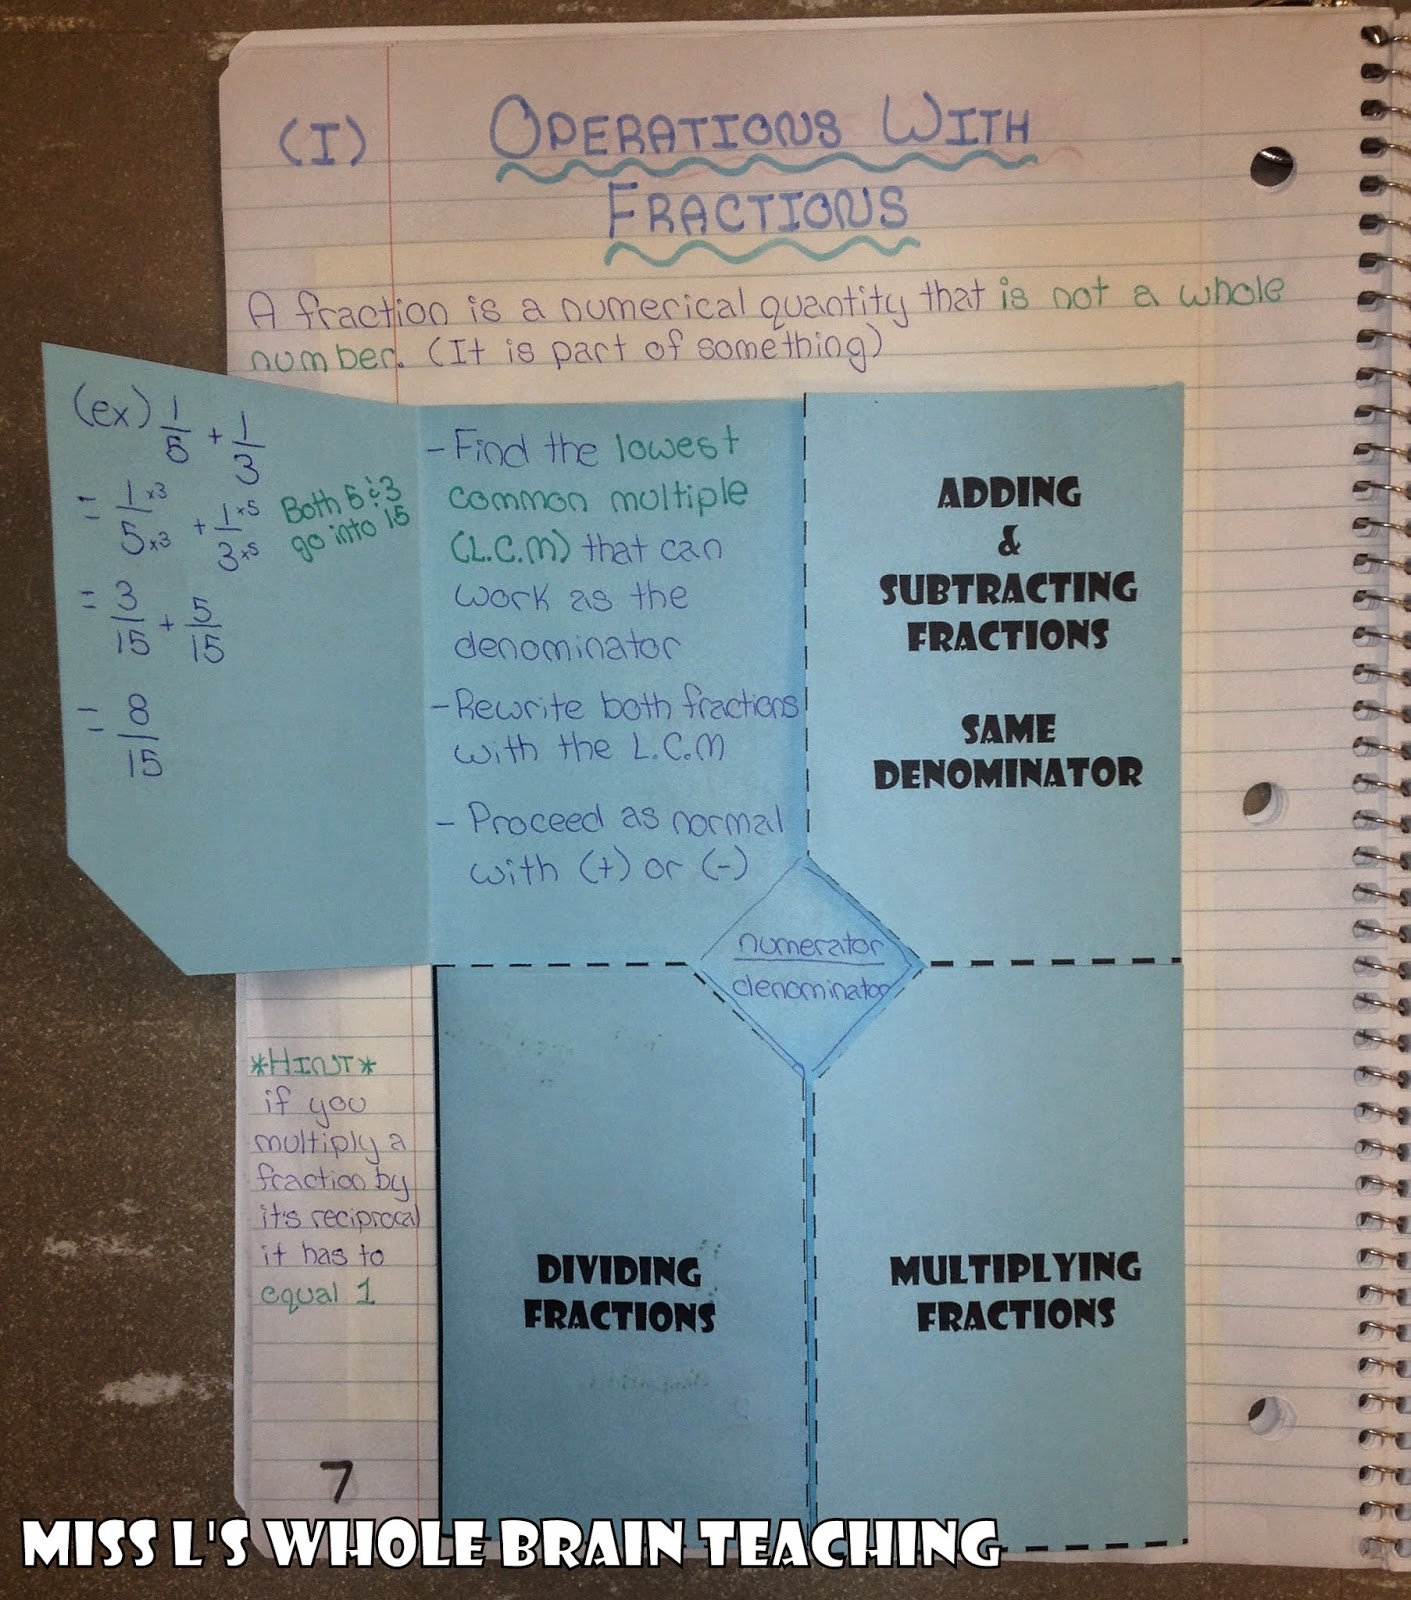 (I)
OPERATIONS WITH
FRACTIONS
A fraction is a numerical quantity that is not a whole
number. (It is part of something)
(ex) 1/5 + 1/3
= 1 x3/5 x3 + 1 x5/3 x5
Both 5 & 3
go into 15
= 3/15 + 5/15
= 8/15
- Find the lowest
common multiple
(L.C.M) that can
work as the
denominator
- Rewrite both fractions
with the L.C.M
- Proceed as normal
with (+) or (-)
ADDING
&
SUBTRACTING
FRACTIONS
SAME
DENOMINATOR
numerator
denominator
*HINT*
if you
multiply a
fraction by
it's reciprocal
it has to
equal 1
DIVIDING
FRACTIONS
MULTIPLYING
FRACTIONS
7
MISS L'S WHOLE BRAIN TEACHING